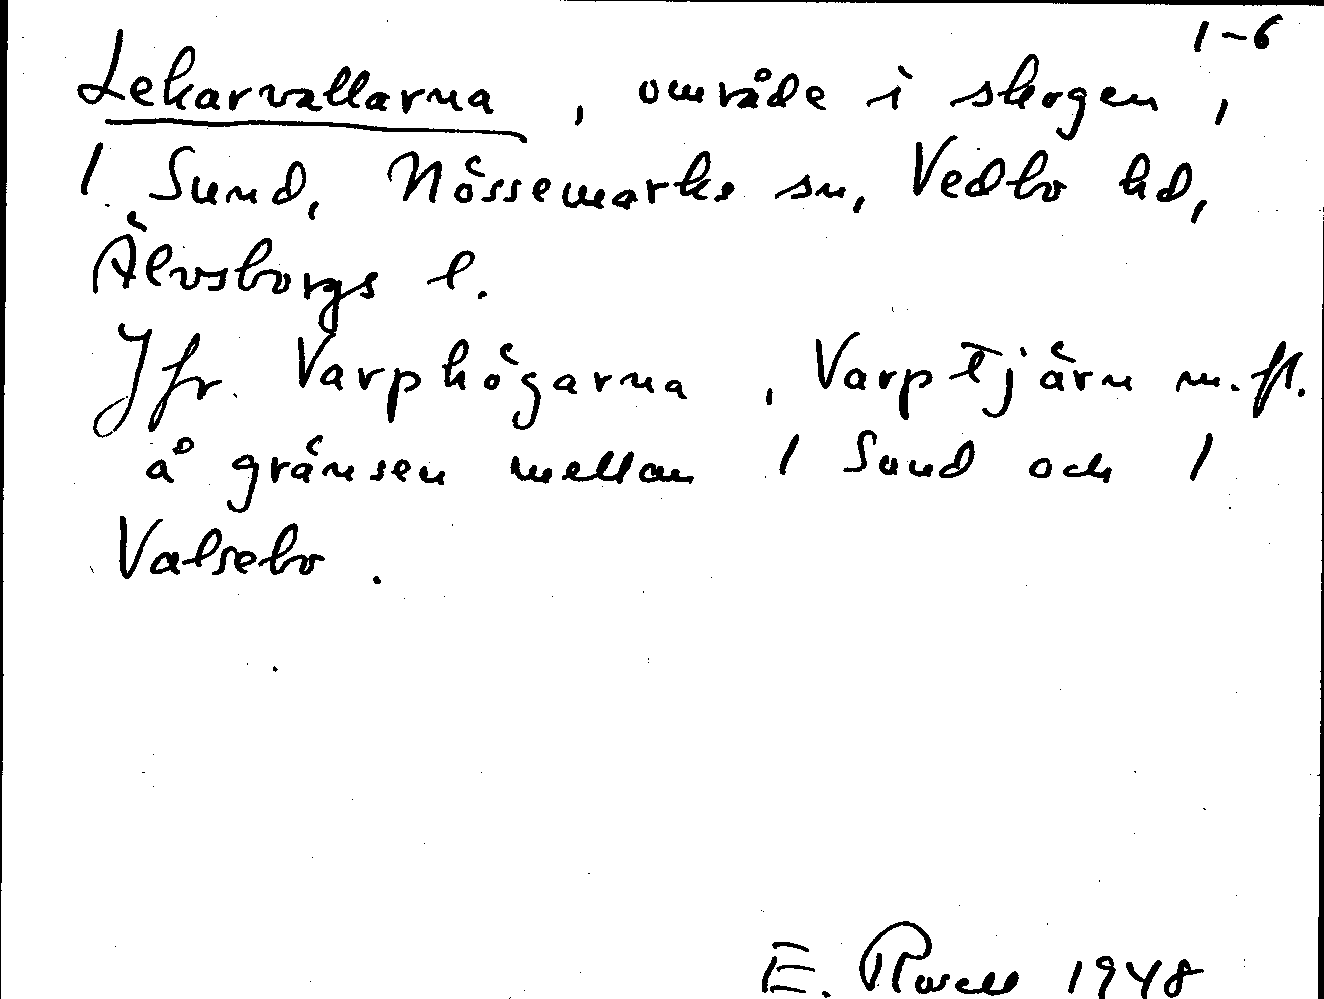 1-6
Lekarvallarna, område i skogen,
1 Sund, Nössemarks sn, Vedbo hd,
Älvsborgs l.
Jfr. Varphögarna, Varptjärn m.fl.
å gränsen mellan 1 Sund och 1
Valsebo.
E. Rosell 1948